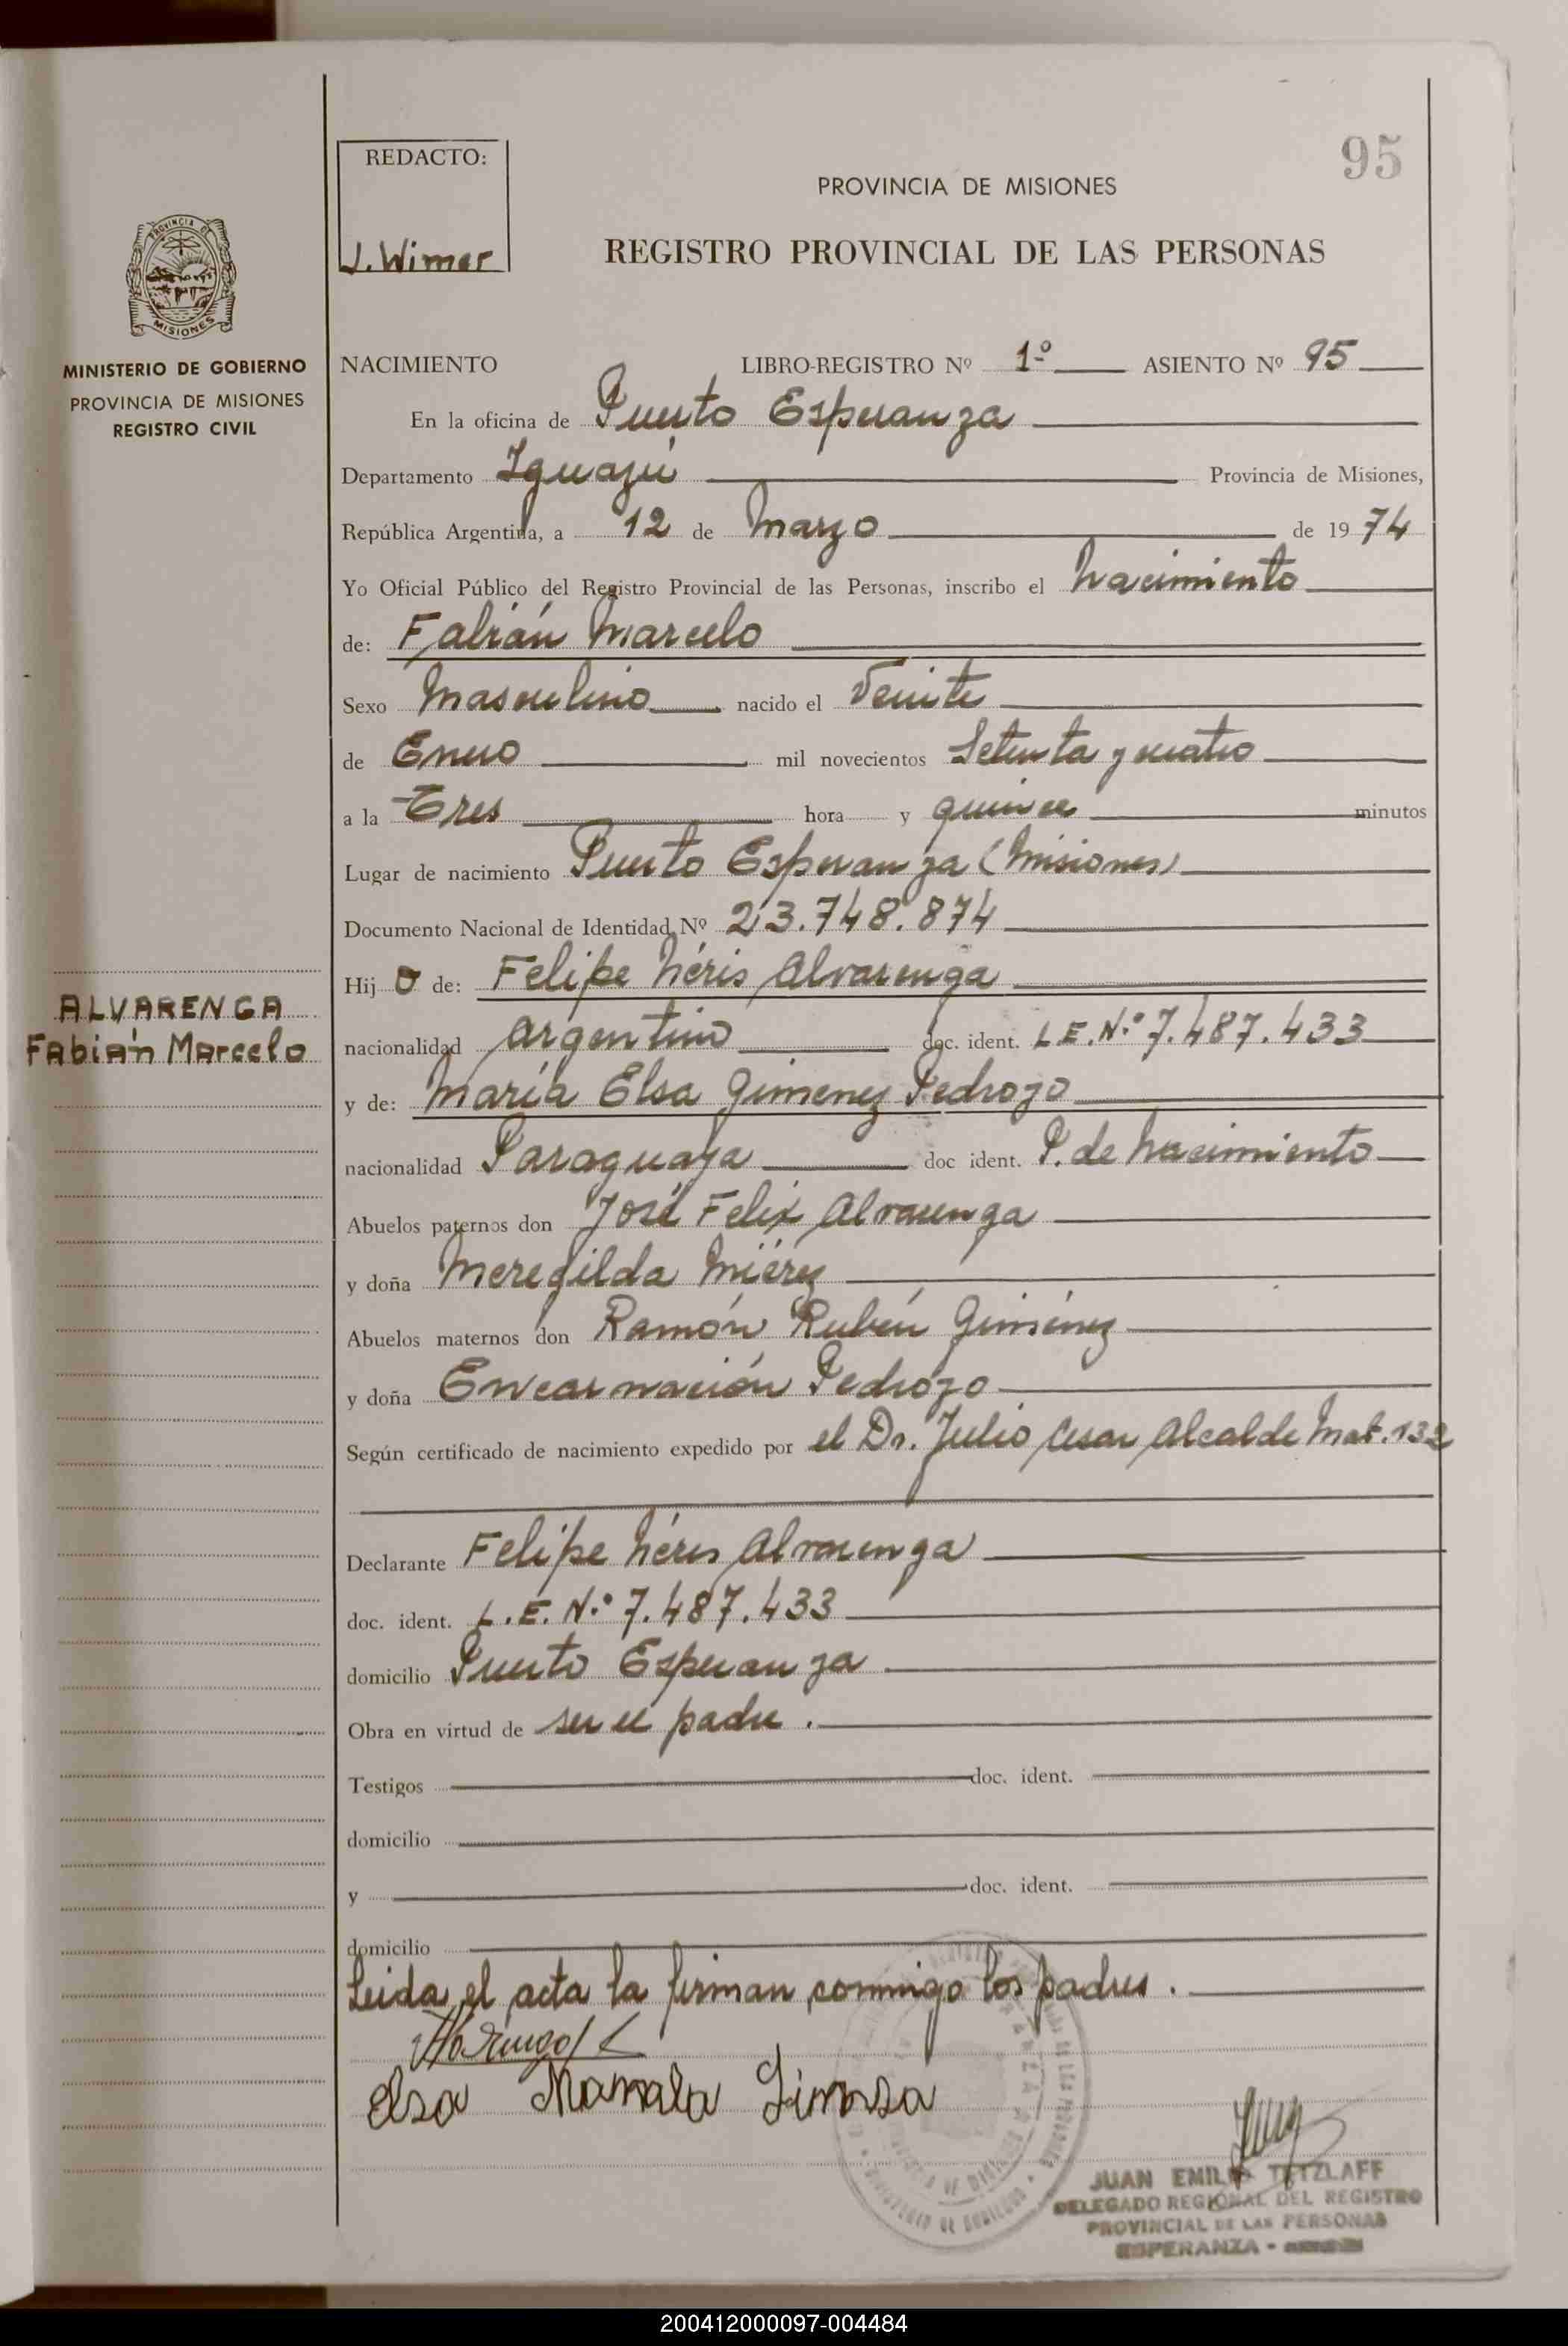 95
REDACTO:
J. Wimer
PROVINCIA DE MISIONES
REGISTRO PROVINCIAL DE LAS PERSONAS
PROVINCIA DE
MISIONES
MINISTERIO DE GOBIERNO
PROVINCIA DE MISIONES
REGISTRO CIVIL
ALVARENGA
Fabián Marcelo
NACIMIENTO LIBRO-REGISTRO Nº 1º ASIENTO Nº 95
En la oficina de Puerto Esperanza
Departamento Iguazú Provincia de Misiones,
República Argentina, a 12 de Marzo de 1974
Yo Oficial Público del Registro Provincial de las Personas, inscribo el Nacimiento
de: Fabián Marcelo
Sexo Masculino nacido el Veinte
de Enero mil novecientos Setenta y cuatro
a la Tres hora y quince minutos
Lugar de nacimiento Puerto Esperanza (Misiones)
Documento Nacional de Identidad Nº 23.748.874
Hijo de: Felipe Néris Alvarenga
nacionalidad Argentino doc. ident. L.E. N.º 7.487.433
y de: María Elsa Gimenez Pedrozo
nacionalidad Paraguaya doc ident. P. de Nacimiento
Abuelos paternos don José Felix Alvarenga
y doña Meregilda Miérez
Abuelos maternos don Ramón Rubén Giménez
y doña Encarnación Pedrózo
Según certificado de nacimiento expedido por el Dr. Julio Cesar Alcalde Mat. 132
Declarante Felipe Néris Alvarenga
doc. ident. L.E. N.º 7.487.433
domicilio Puerto Esperanza
Obra en virtud de ser el padre.
Testigos doc. ident.
domicilio
y doc. ident.
domicilio
Leida el acta la firman conmigo los padres.
Elsa
JUAN EMILIO TETZLAFF
DELEGADO REGIONAL DEL REGISTRO
PROVINCIAL DE LAS PERSONAS
ESPERANZA -
200412000097-004484